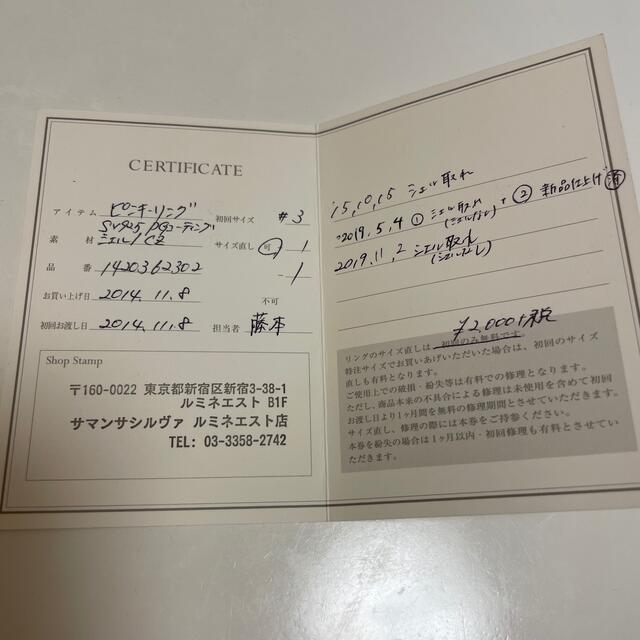 CERTIFICATE
アイテム ピンキーリング 初回サイズ #3
SV925 PGコーティング
素材 シェル/CZ サイズ直し 可 1
品番 1420362302 -1
お買い上げ日 2014.11.8 不可
初回お渡し日 2014.11.8 担当者 藤本
Shop Stamp
〒160-0022 東京都新宿区新宿3-38-1
ルミネエスト B1F
サマンサシルヴァ ルミネエスト店
TEL: 03-3358-2742
'15.10.15 シェル取れ
2019.5.4 ① シェル取れ (シェルなし) + ② 新品仕上げ 済
2019.11.2 シェル取れ (シェルなし)
¥2,000+税
リングのサイズ直しは 初回のみ無料です。
特注サイズでお買いあげいただいた場合は、初回のサイズ
直しも有料となります。
ご使用上での破損・紛失等は有料での修理となります。
ただし、商品本来の不具合による修理は未使用を含めて初回
お渡し日より1ヶ月間を無料の修理期間とさせていただきます。
サイズ直し、修理の際には本券をご持参ください。
本券を紛失の場合は1ヶ月以内・初回修理も有料とさせてい
ただきます。